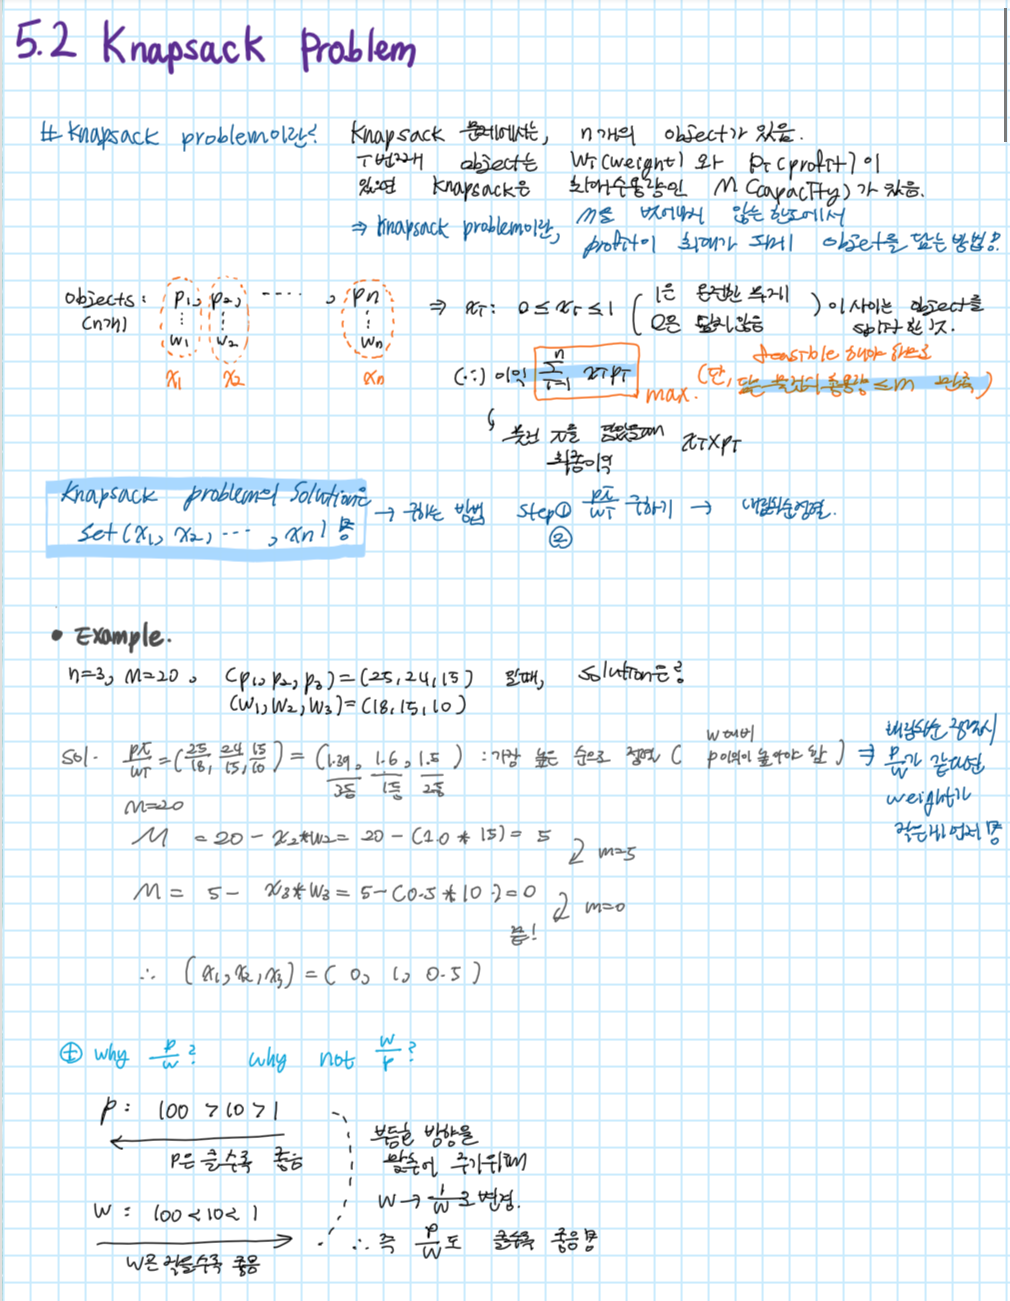 5.2 Knapsack Problem
# Knapsack problem이란? Knapsack 문제에서는, n개의 object가 있음.
i번째 object는 wi(weight)와 pi(profit)이
있으며 knapsack은 최대수용량인 M(capacity)가 있음.
⇒ knapsack problem이란, m을 벗어나지 않는 한도에서
profit이 최대가 되게 object를 담는 방법?
objects: p1, p2, ----, pn ⇒ xi: 0 ≤ xi ≤ 1 (1은 온전한 무게
(n개) w1 w2 wn 0은 담지않음) 이 사이는 object를
split 한 것.
x1 x2 xn
feasible 해야 하므로
(∴) 이익 n∑i=1 xipi max. (단, 담은 물건의 총용량 ≤ m 만족)
물건 i를 담았을때 xi×pi
최종이익
Knapsack problem의 Solution은 → 구하는 방법 step① pi/wi 구하기 → 내림차순정렬.
set(x1, x2, ···, xn)
②
• Example.
n=3, M=20, (p1, p2, p3)=(25,24,15) 일때, solution은?
(w1, w2, w3)=(18,15,10)
sol. pi/wi=(25/18, 24/15, 15/10) = (1.39, 1.6, 1.5) : 가장 높은 순으로 정렬 (w대비 p이익이 높아야 함) ⇒
3등 1등 2등
내림차순 정렬시
p/w가 같다면
weight가
작은게 먼저
M=20
M = 20 - x2*w2 = 20 - (1.0 * 15) = 5
m=5
M = 5 - x3*w3 = 5-(0.5*10)=0
m=0
끝!
∴ (x1, x2, x3) = (0, 1, 0.5)
⊕ why p/w? why not w/p?
p: 100 > 10 > 1
p은 클수록 좋음
부등호 방향을
맞추어 주기위해
w → 1/w로 변경.
w: 100 < 10 < 1
w은 작을수록 좋음
∴ 즉 p/w도 클수록 좋음